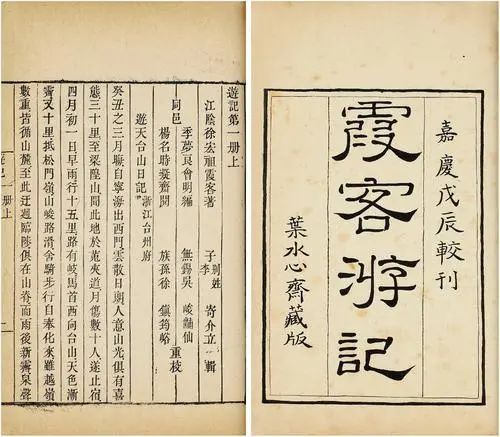 嘉慶戊辰較刊
霞客游記
葉水心齋藏版
遊記第一册上
江陰徐宏祖霞客著 子 李 別姓 寄介立 輯
季夢良會明編 無錫吳 峻 仙
同邑 重校
楊名時凝齋閱 族孫徐 鎮筠峪
遊天台山日記 浙江台州府
癸丑之三月晦自寧海出西門雲散日朗人意山光俱有喜
態三十里至梁隍山聞此地於菟夾道月傷數十人遂止宿
四月初一日早雨行十五里路有岐馬首西向台山天色漸
霽又十里抵松門嶺山峻路滑舍騎步行自奉化來雖越嶺
數重皆循山麓至此迂迴臨陟俱在山脊而雨後新霽泉聲
遊記 一册上